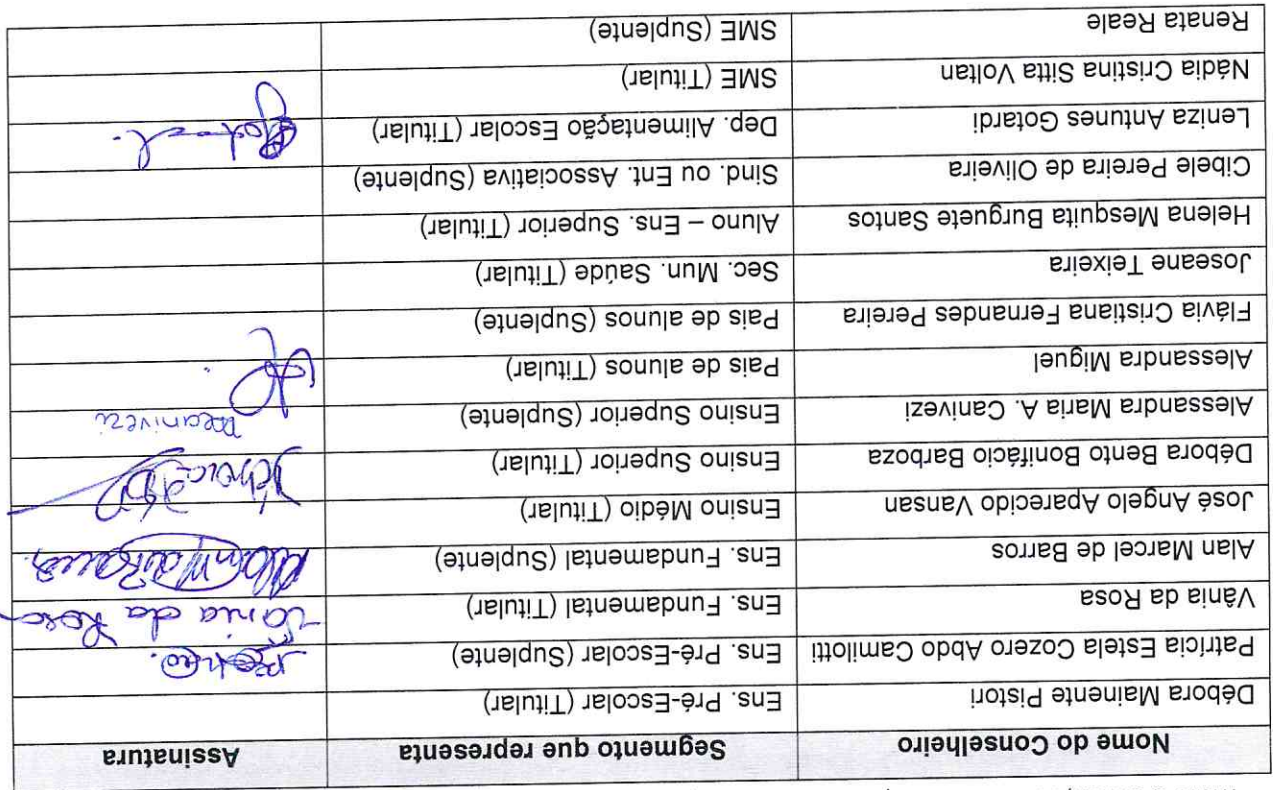 Nome do Conselheiro Segmento que representa Assinatura
Débora Mainente Pistori Ens. Pré-Escolar (Titular)
Patrícia Estela Cozero Abdo Camilotti Ens. Pré-Escolar (Suplente)
Vânia da Rosa Ens. Fundamental (Titular) Vânia da Rosa
Alan Marcel de Barros Ens. Fundamental (Suplente)
José Angelo Aparecido Vansan Ensino Médio (Titular)
Débora Bento Bonifácio Barboza Ensino Superior (Titular)
Alessandra Maria A. Canivezi Ensino Superior (Suplente)
Alessandra Miguel Pais de alunos (Titular)
Flávia Cristiana Fernandes Pereira Pais de alunos (Suplente)
Joseane Teixeira Sec. Mun. Saúde (Titular)
Helena Mesquita Burguete Santos Aluno – Ens. Superior (Titular)
Cibele Pereira de Oliveira Sind. ou Ent. Associativa (Suplente)
Leniza Antunes Gotardi Dep. Alimentação Escolar (Titular)
Nádia Cristina Sitta Voltan SME (Titular)
Renata Reale SME (Suplente)